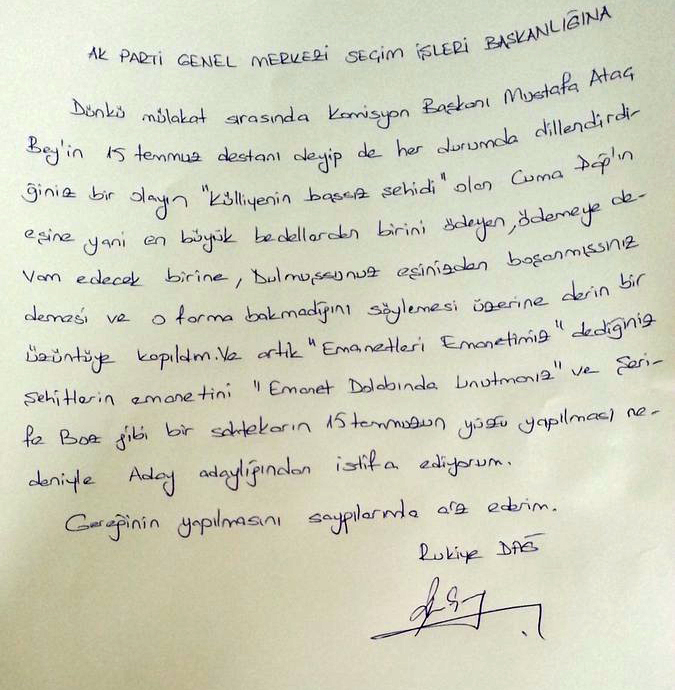 AK PARTİ GENEL MERKEZİ SEÇİM İŞLERİ BAŞKANLIĞINA
Dünkü mülakat sırasında Komisyon Başkanı Mustafa Ataç
Bey'in 15 temmuz destanı deyip de her durumda dillendirdi-
ğiniz bir olayın "Külliyenin başsız şehidi" olan Cuma Dağ'ın
eşine yani en büyük bedellerden birini ödeyen, ödemeye de-
vam edecek birine, Dulmuşsunuz eşinizden boşanmışsınız
demesi ve o forma bakmadığını söylemesi üzerine derin bir
üzüntüye kapıldım. Ve artık "Emanetleri Emanetimiz" dediğiniz
şehitlerin emanetini "Emanet Dolabında Unutmanız" ve Şeri-
fe Boz gibi bir sahtekarın 15 temmuzun yüzü yapılması ne-
deniyle Aday adaylığından istifa ediyorum.
Gereğinin yapılmasını saygılarımla arz ederim.
Rukiye DAĞ